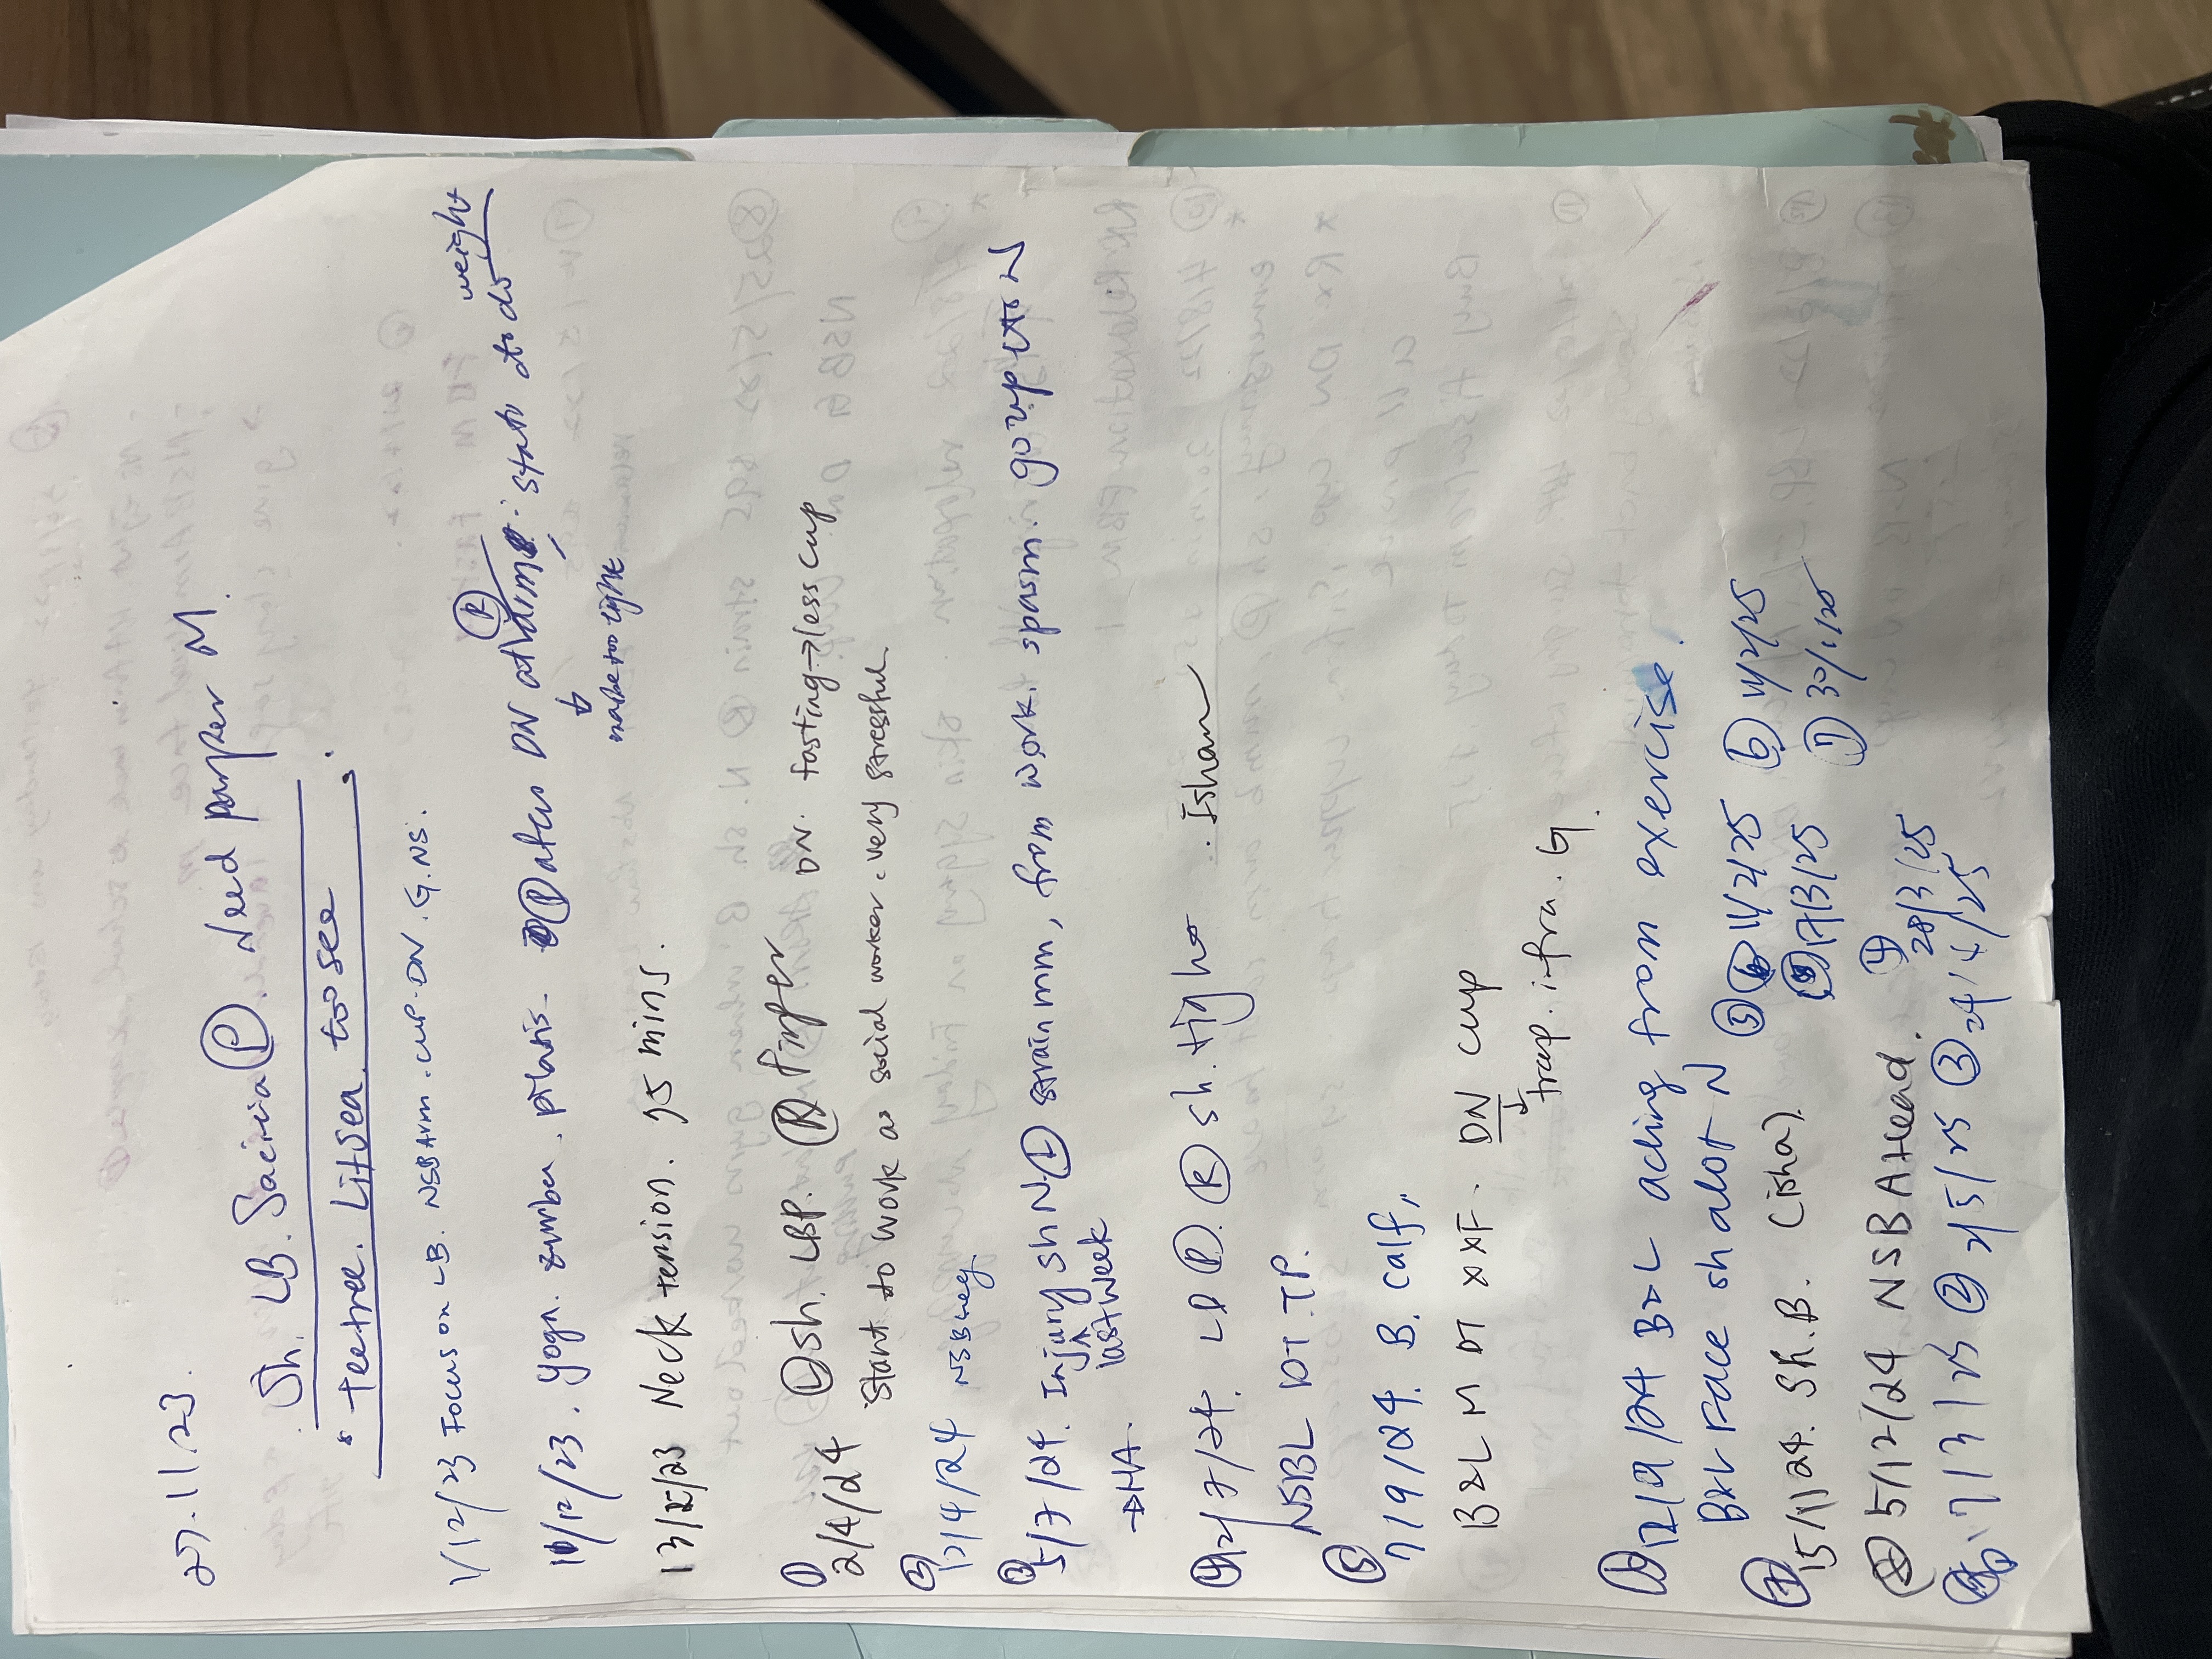 27.11.23.
Sh. LB. Sacivia Ⓟ. Need proper M.
* teetree. Litsea. to see.
1/12/23 Focus on LB. NSBArm. cup. DN. G. NS.
weight
10/12/23. yoga. zumba. pilatis. Ⓟ after DN start to do
make too tight
13/12/23 Neck tension. 75 mins.
① 2/4/24 Ⓛ sh. LBP. Ⓡ finger DN. fasting → less cup
Start to work as social worker. very stressful.
② 12/4/24 NSBLneg
③ 5/7/24. Injury sh N Ⓛ strain mm, from work. spasm. go up to N
last week
→ HA.
④ 12/7/24. LD Ⓟ. Ⓡ sh. tight. Isham
NSBL DT. TP.
⑤ 7/9/24. B. calf,
B2L M DT XXF. DN cup
↓ trap. infra. G.
⑥ 12/9/24 B2L aching from exercise.
B2L Face sh alot N ⑤ 11/2/25 ⑥ 11/2/25
⑦ 15/11/24. Sh. B. (isha). 17/3/25 ⑦ 30/1/25
⑧ 5/12/24 NSBAHead. ④ 28/3/25
17/3/25 ② 2/5/25 ③ 24/4/25